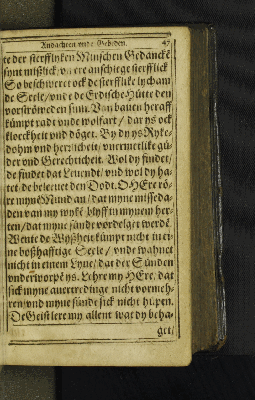 Andachten vnde Gebeden. 47
te der sterfflyken Minschen Gedancke
synt mißlick, vn ere anschlege sterfflick
So beschweret ock de sterfflike lycham
de Seele / vnde de Erdische Hütte den
vorströweden sinn. Van bauen heraff
kümpt radt vnde wolfart / dar ys ock
klockheit vnd döget. By dy ys Ryke-
dohm vnd herlicheit / vnermetlike gü-
der vnd Gerechticheit. Wol dy findet /
de findet dat Leuendt / vnd wol dy ha-
tet / de beleuet den Dodt. O HEre rö-
re myne Mund an / dat myne misseda-
den van my wyke / blyff in mynem her-
ten / dat myne sünde vordelget werde
Wente de Wyßheit kümpt nicht in ei-
ne boßhafftige Seele / vnde wahnet
nicht in einem Lyue / dat der Sünden
vnderworpe ys. Lehre my HEre / dat
sick myne auertredinge nicht vormeh-
ren / vnd myne sünde sick nicht hüpen.
De Geist lere my allent wat dy beha-
get /